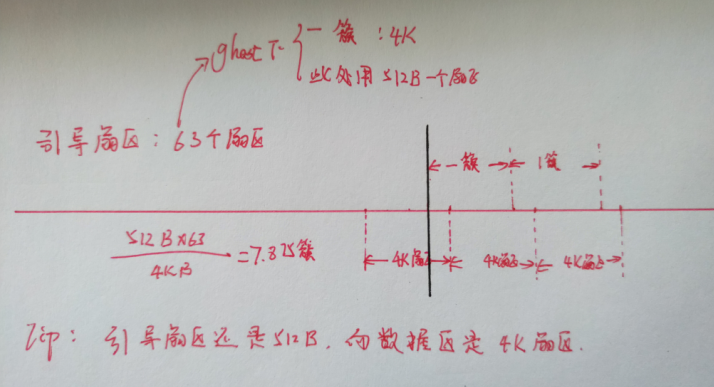 ghost下 一簇:4K
此处用 512B一个扇区
引导扇区:63个扇区
一簇 1簇
512B×63
4KB
=7.875簇
4K扇区 4K扇区 4K扇区
Tip: 引导扇区还是512B,而数据区是4K扇区.